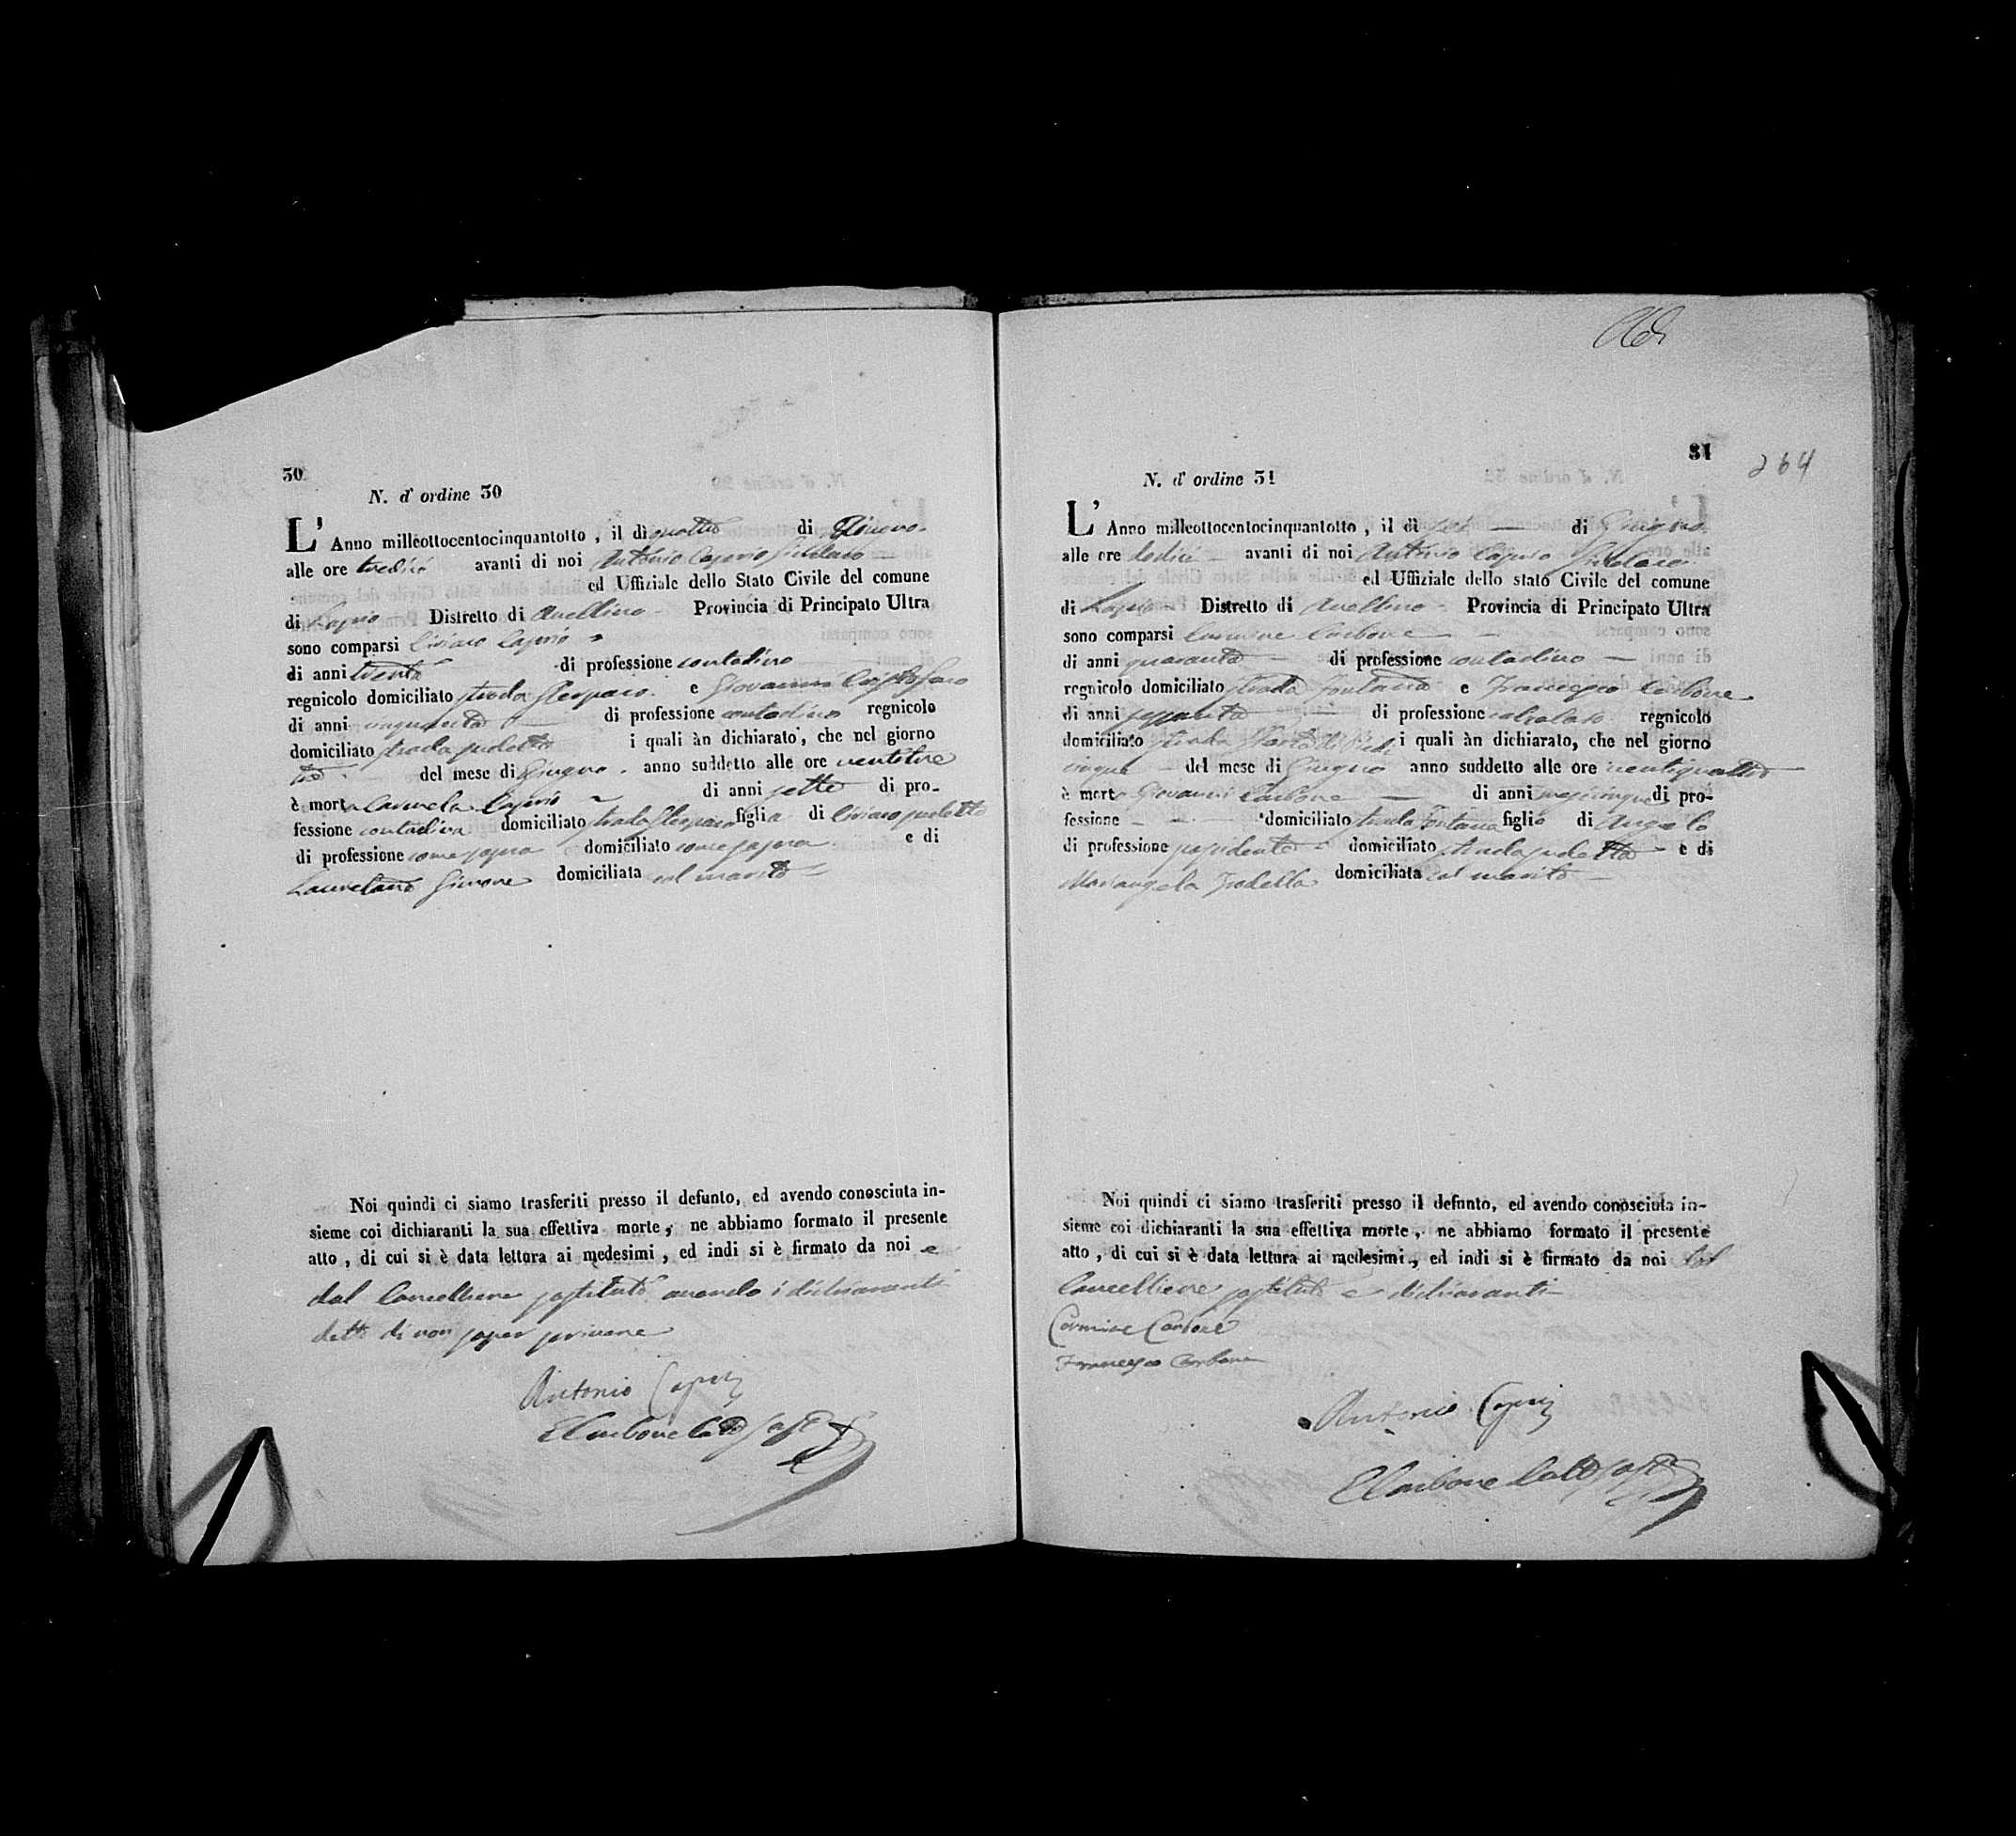 30
N. d' ordine 30
L' Anno milleottocentocinquantotto, il dì quattro di Giugno
alle ore tredici avanti di noi Antonio Caprio Sindaco
ed Uffiziale dello Stato Civile del comune
di Lapio Distretto di Avellino Provincia di Principato Ultra
sono comparsi Ciriaco Caprio
di anni trenta di professione contadino
regnicolo domiciliato strada e Giovanni Cristofaro
di anni cinquanta di professione contadino regnicolo
domiciliato strada sudetta i quali àn dichiarato, che nel giorno
tre del mese di Giugno anno suddetto alle ore ventitre
è morta Carmela Caprio di anni sette di pro-
fessione contadina domiciliato strada figlia di Ciriaco sudetto
di professione come sopra domiciliato come sopra e di
Lauretana Simone domiciliata col marito
Noi quindi ci siamo trasferiti presso il defunto, ed avendo conosciuta in-
sieme coi dichiaranti la sua effettiva morte, ne abbiamo formato il presente
atto, di cui si è data lettura ai medesimi, ed indi si è firmato da noi e
dal Cancelliere sostituto avendo i dichiaranti
detto di non saper scrivere
Antonio Caprio
E Carbone Canc Sost
31
264
N. d' ordine 31
L' Anno milleottocentocinquantotto, il dì sei di Giugno
alle ore dodici avanti di noi Antonio Caprio Sindaco
ed Uffiziale dello stato Civile del comune
di Lapio Distretto di Avellino Provincia di Principato Ultra
sono comparsi Carmine Carbone
di anni quaranta di professione contadino
regnicolo domiciliato strada Fontana e Francesco Carbone
di anni sessanta di professione calzolaio regnicolo
domiciliato strada i quali àn dichiarato, che nel giorno
cinque del mese di Giugno anno suddetto alle ore ventiquattro
è morto Giovanni Carbone di anni mesi cinque di pro-
fessione domiciliato strada Fontana figlio di Angelo
di professione possidente domiciliato strada sudetta e di
Mariangela Trodella domiciliata col marito
Noi quindi ci siamo trasferiti presso il defunto, ed avendo conosciuta in-
sieme coi dichiaranti la sua effettiva morte, ne abbiamo formato il presente
atto, di cui si è data lettura ai medesimi, ed indi si è firmato da noi col
Cancelliere sostituto e dichiaranti
Carmine Carbone
Francesco Carbone
Antonio Caprio
E Carbone Canc Sost